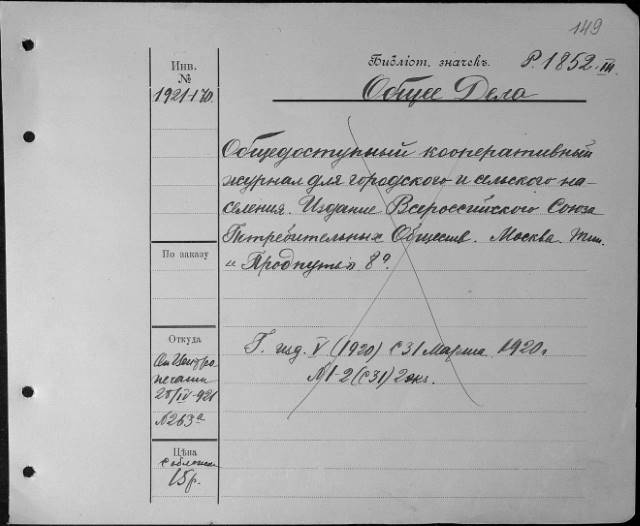 149
Библіот. значекъ. Р. 1852 III.
Общее Дела
Инв.
№
1921-170.
Общедоступный кооперативный
журнал для городского и сельского на-
селения. Издание Всероссийского Союза
Потребительных Обществ. Москва. Тип.
"Продпуть" 8º.
По заказу
Г. изд. V (1920) с 31 Марта 1920г.
№1-2 (с 31) 2 экз.
Откуда
От Центро
печати
25/IV-921
№263а
Цѣна
15 р.